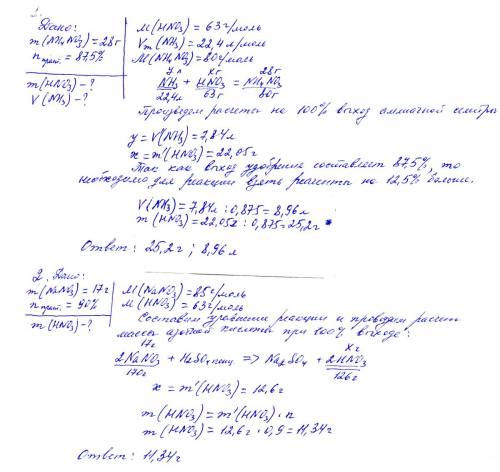 1.
Дано:
m(NH₄NO₃)=28г
η прак.=87,5%
m(HNO₃)-?
V(NH₃)-?
M(HNO₃)=63г/моль
Vm(NH₃)=22,4л/моль
M(NH₄NO₃)=80г/моль
y л xг 28г
NH₃ + HNO₃ = NH₄NO₃
22,4л 63г 80г
Произведем расчеты на 100% выход аммиачной селитры
y=V'(NH₃)=7,84л
x=m'(HNO₃)=22,05г
Так как выход удобрения составляет 87,5%, то
необходимо для реакции взять реагенты на 12,5% больше.
V(NH₃)=7,84л:0,875=8,96л
m(HNO₃)=22,05г:0,875=25,2г
Ответ: 25,2г; 8,96л
2. Дано:
m(NaNO₃)=17г
η прак.=90%
m(HNO₃)-?
M(NaNO₃)=85г/моль
M(HNO₃)=63г/моль
Составим уравнение реакции и проводим расчет
массы азотной кислоты при 100% выходе:
17г xг
2NaNO₃ + H₂SO₄ конц => Na₂SO₄ + 2HNO₃
170г 126г
x=m'(HNO₃)=12,6г
m(HNO₃)=m'(HNO₃)·η
m(HNO₃)=12,6г·0,9=11,34г
Ответ: 11,34г